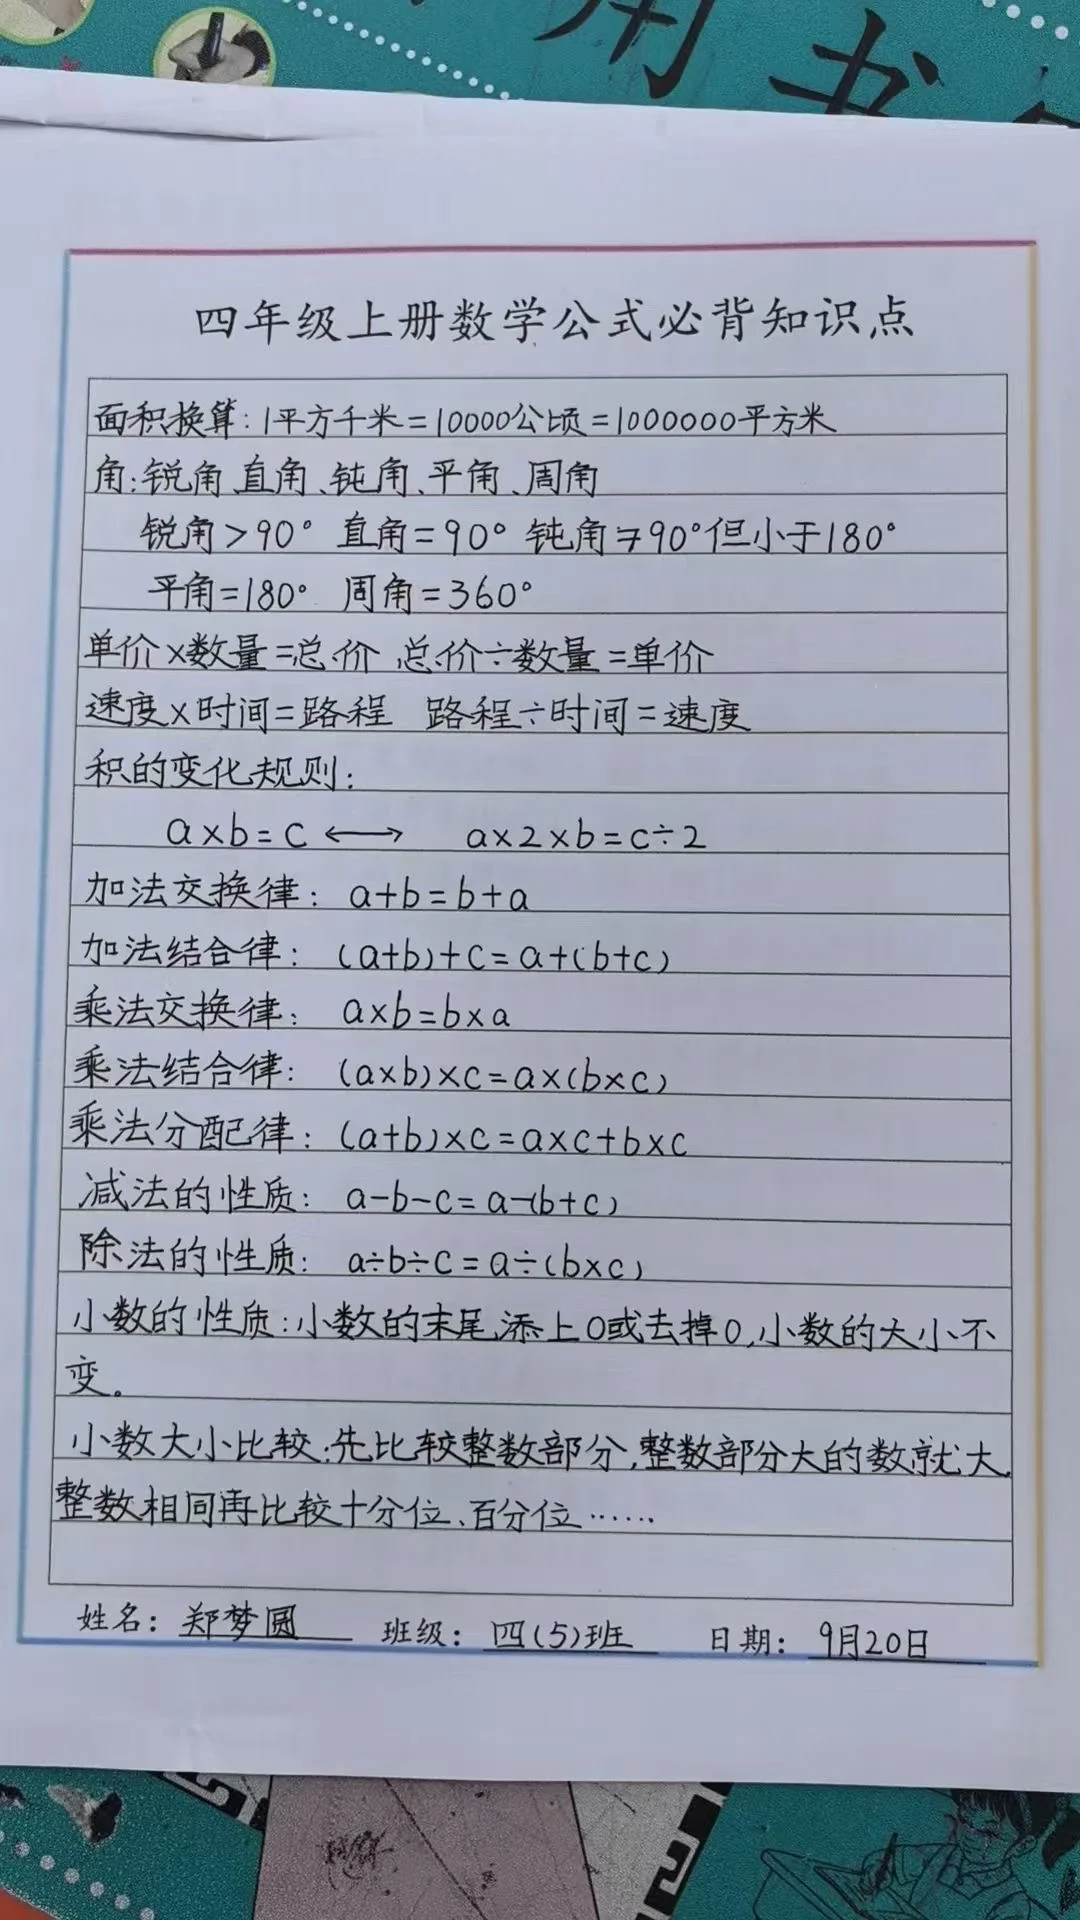 用书
四年级上册数学公式必背知识点
面积换算：1平方千米=10000公顷=1000000平方米
角：锐角、直角、钝角、平角、周角
锐角>90° 直角=90° 钝角≠90°但小于180°
平角=180° 周角=360°
单价×数量=总价 总价÷数量=单价
速度×时间=路程 路程÷时间=速度
积的变化规则：
a×b=c⟷ a×2×b=c÷2
加法交换律：a+b=b+a
加法结合律：(a+b)+c=a+(b+c)
乘法交换律：a×b=b×a
乘法结合律：(a×b)×c=a×(b×c)
乘法分配律：(a+b)×c=a×c+b×c
减法的性质：a-b-c=a-(b+c)
除法的性质：a÷b÷c=a÷(b×c)
小数的性质：小数的末尾添上0或去掉0，小数的大小不
变。
小数大小比较：先比较整数部分，整数部分大的数就大，
整数相同再比较十分位、百分位……
姓名：郑梦圆 班级：四(5)班 日期：9月20日